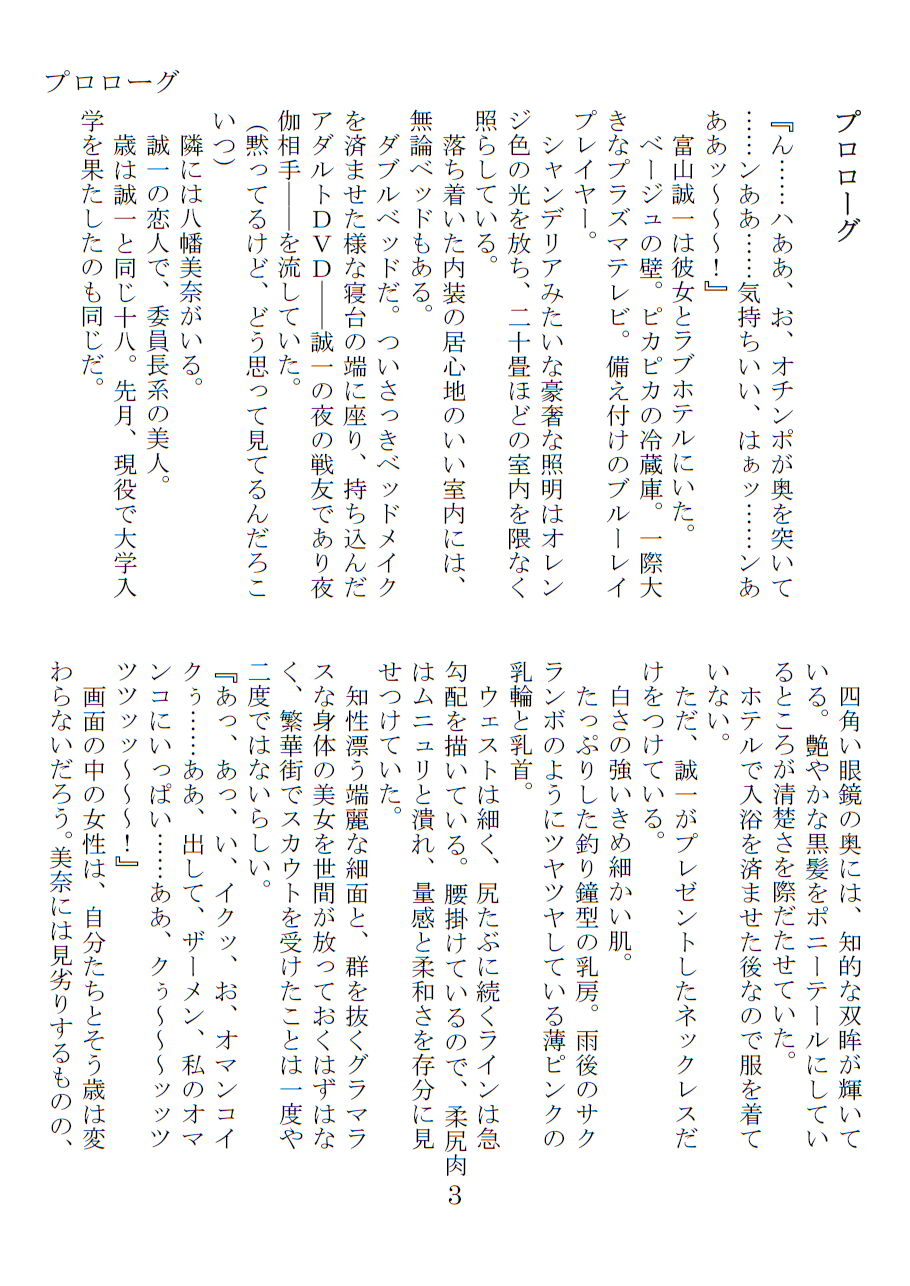 プロローグ
プロローグ
『ん……ハああ、お、オチンポが奥を突いて
……ンああ……気持ちいい、はぁッ……ンあ
ああッ～～～！』
富山誠一は彼女とラブホテルにいた。
ベージュの壁。ピカピカの冷蔵庫。一際大
きなプラズマテレビ。備え付けのブルーレイ
プレイヤー。
シャンデリアみたいな豪奢な照明はオレン
ジ色の光を放ち、二十畳ほどの室内を隈なく
照らしている。
落ち着いた内装の居心地のいい室内には、
無論ベッドもある。
ダブルベッドだ。ついさっきベッドメイク
を済ませた様な寝台の端に座り、持ち込んだ
アダルトＤＶＤ――誠一の夜の戦友であり夜
伽相手――を流していた。
（黙ってるけど、どう思って見てるんだろこ
いつ）
隣には八幡美奈がいる。
誠一の恋人で、委員長系の美人。
歳は誠一と同じ十八。先月、現役で大学入
学を果たしたのも同じだ。
四角い眼鏡の奥には、知的な双眸が輝いて
いる。艶やかな黒髪をポニーテールにしてい
るところが清楚さを際だたせていた。
ホテルで入浴を済ませた後なので服を着て
いない。
ただ、誠一がプレゼントしたネックレスだ
けをつけている。
白さの強いきめ細かい肌。
たっぷりした釣り鐘型の乳房。雨後のサク
ランボのようにツヤツヤしている薄ピンクの
乳輪と乳首。
ウェストは細く、尻たぶに続くラインは急
勾配を描いている。腰掛けているので、柔尻肉
はムニュリと潰れ、量感と柔和さを存分に見
せつけていた。
知性漂う端麗な細面と、群を抜くグラマラ
スな身体の美女を世間が放っておくはずはな
く、繁華街でスカウトを受けたことは一度や
二度ではないらしい。
『あっ、あっ、い、イクッ、お、オマンコイ
クぅ……ああ、出して、ザーメン、私のオマ
ンコにいっぱい……ああ、クぅ～～～ッッツ
ツツッッ～～～！』
画面の中の女性は、自分たちとそう歳は変
わらないだろう。美奈には見劣りするものの、
3